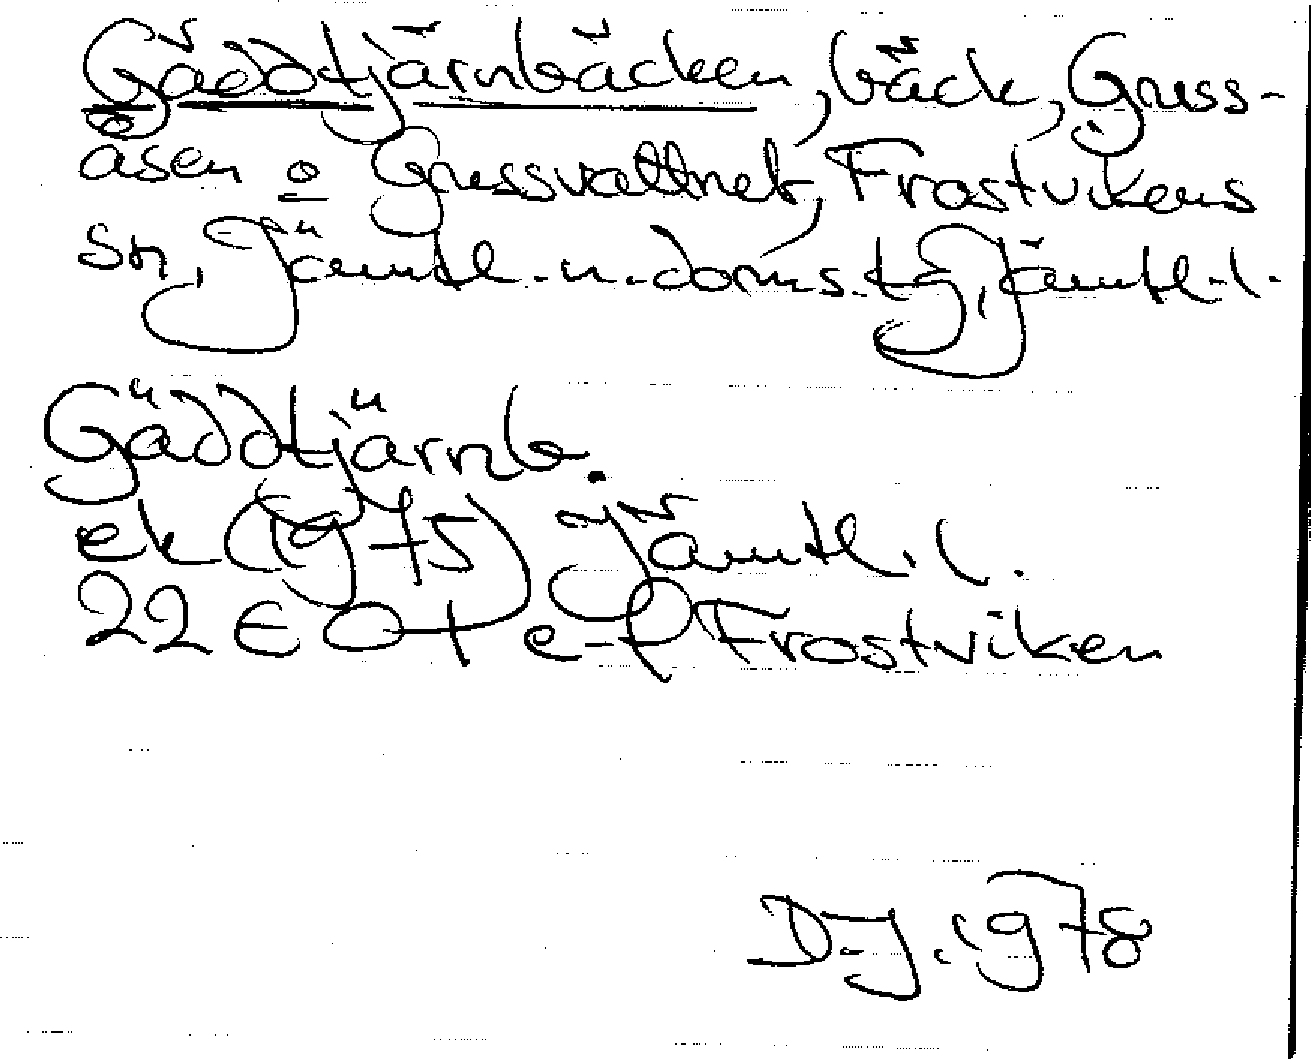 Gäddtjärnbäcken, bäck, Gruss-
åsen o Grussvattnet, Frostvikens
sn, Jämtl. n. doms. tg, Jämtl. l.
Gäddtjärnb.
ek (1975) Jämtl. l.
22E 07 e-f Frostviken
D.J. 1978